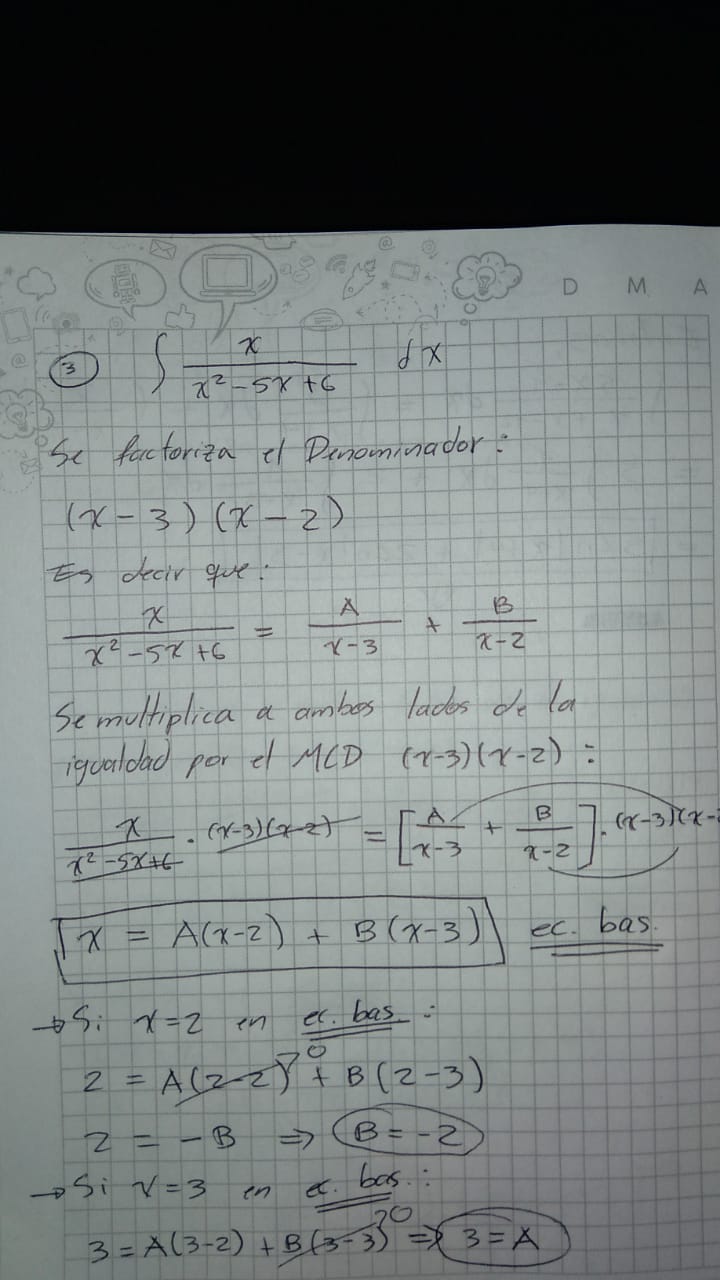 D M A
3 ∫ x / (x² - 5x + 6) dx
Se factoriza el Denominador:
(x - 3) (x - 2)
Es decir que:
x / (x² - 5x + 6) = A / (x - 3) + B / (x - 2)
Se multiplica a ambos lados de la
igualdad por el MCD (x-3)(x-2) :
x / (x² - 5x + 6) · (x-3)(x-2) = [A / (x-3) + B / (x-2)] · (x-3)(x-
x = A(x-2) + B(x-3) ec. bas.
→ Si x=2 en ec. bas. :
2 = A(2-2)→0 + B(2-3)
2 = -B ⇒ B = -2
→ Si x=3 en ec. bas. :
3 = A(3-2) + B(3-3)→0 ⇒ 3 = A